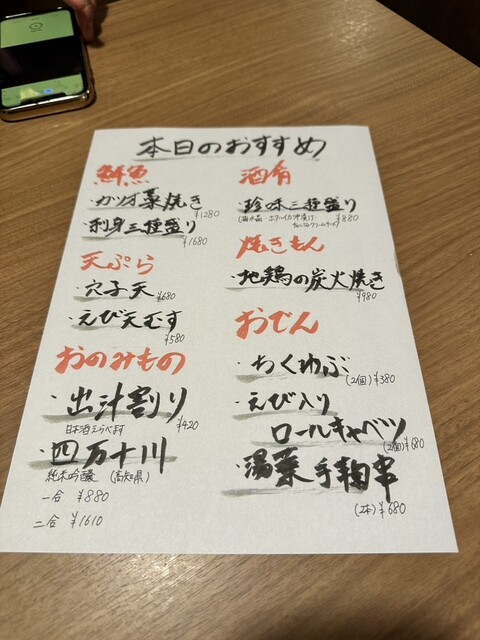 本日のおすすめ
鮮魚
・カツオ藁焼き
¥1280
・刺身三種盛り
¥1680
天ぷら
・穴子天 ¥680
・えび天むす
¥580
おのみもの
・出汁割り
日本酒えらべます ¥420
・四万十川
純米吟醸 (高知県)
一合 ¥880
二合 ¥1610
酒肴
・珍味三種盛り
¥880
焼きもん
・地鶏の炭火焼き
¥980
おでん
・ちくわぶ
(2個)¥380
・えび入り
ロールキャベツ
(2個)¥680
・湯葉手鞠串
(2本)¥680